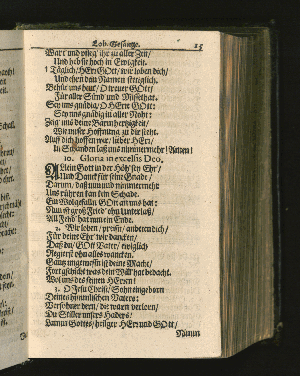 Lob-Gesänge. 15
Wart und pfleg ihr zu aller Zeit/
Und heb sie hoch in Ewigkeit.
Täglich/ HErr GOtt/ wir loben dich/
Und ehren dein Namen stetiglich.
Behüt uns heut/ O treuer GOtt/
Für aller Sünd und Missethat.
Sey uns gnädig/ O HErre GOtt/
Sey uns gnädig in aller Noht:
Zeig uns deine Barmhertzigkeit/
Wie unser Hoffnung zu dir steht.
Auff dich hoffen wir/ lieber HErr/
In Schanden laß uns nimmermehr! Amen!
10. Gloria in excelsis Deo.
ALlein Gott in der Höh sey Ehr/
Und Danck für seine Gnade/
Darum/ daß nun und nimmermehr
Uns rühren kan kein Schade.
Ein Wolgefalln GOtt an uns hat:
Nun ist groß Fried ohn Unterlaß/
All Fehd hat nun ein Ende.
2. Wir loben/ preisn/ anbeten dich/
Für deine Ehr wir dancken/
Daß du/ GOtt Vater/ ewiglich
Regierst ohn alles wancken.
Gantz ungemessn ist deine Macht/
Fort gschicht was dein Will hat bedacht.
Wol uns des feinen HErren!
3. O JEsu Christ/ Sohn eingeborn
Deines himmlischen Vaters:
Versöhner dern/ die warn verlorn/
Du Stiller unsers Haders/
Lamm Gottes/ heilger HErr und GOtt/
Nimm